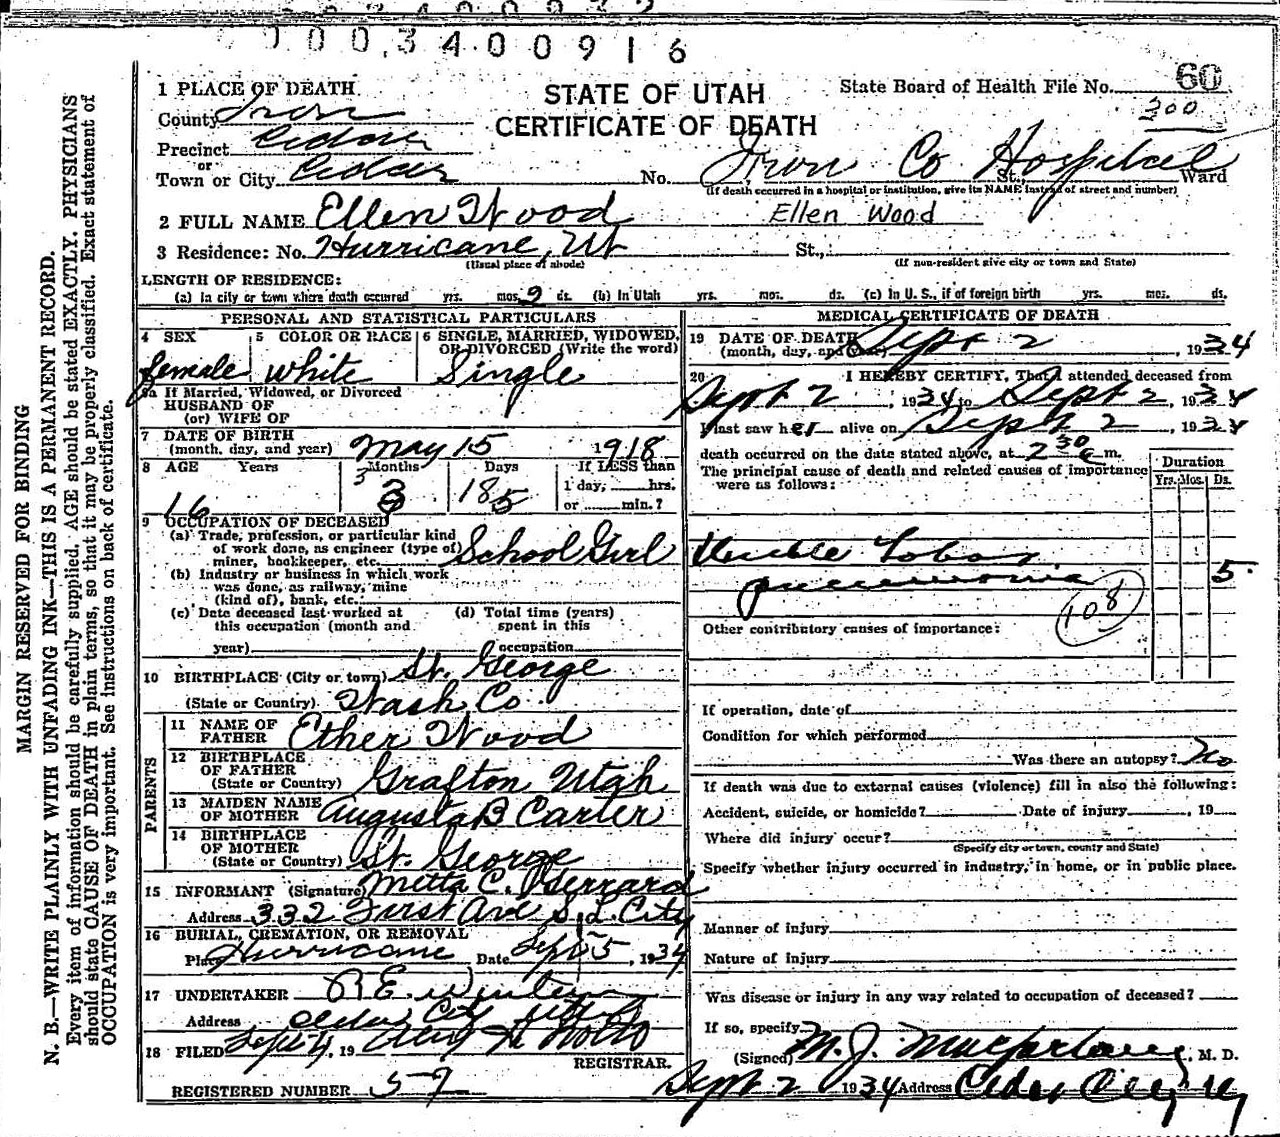 0003400916
1 PLACE OF DEATH
STATE OF UTAH
CERTIFICATE OF DEATH
State Board of Health File No. 60
200
County Iron
Precinct Cedar
or
Town or City Cedar No. Iron Co Hospital St. Ward
(If death occurred in a hospital or institution, give its NAME instead of street and number)
2 FULL NAME Ellen Wood Ellen Wood
3 Residence: No. Hurricane, Ut St.,
(Usual place of abode) (If non-resident give city or town and State)
LENGTH OF RESIDENCE:
(a) In city or town where death occurred yrs. mos. 2 ds. (b) In Utah yrs. mos. ds. (c) In U. S., if of foreign birth yrs. mos. ds.
PERSONAL AND STATISTICAL PARTICULARS
4 SEX 5 COLOR OR RACE 6 SINGLE, MARRIED, WIDOWED, OR DIVORCED (Write the word)
female white Single
5a If Married, Widowed, or Divorced
HUSBAND OF
(or) WIFE OF
7 DATE OF BIRTH
(month, day, and year) May 15 1918
8 AGE Years Months Days If LESS than
1 day, hrs.
or min.?
16 3 3 18 5
9 OCCUPATION OF DECEASED
(a) Trade, profession, or particular kind
of work done, as engineer (type of)
miner, bookkeeper, etc. School Girl
(b) Industry or business in which work
was done, as railway, mine
(kind of), bank, etc.
(c) Date deceased last worked at
this occupation (month and
year)
(d) Total time (years)
spent in this
occupation
10 BIRTHPLACE (City or town) St. George
(State or Country) Wash Co.
PARENTS
11 NAME OF
FATHER Ether Wood
12 BIRTHPLACE
OF FATHER
(State or Country) Grafton Utah
13 MAIDEN NAME
OF MOTHER Augusta B Carter
14 BIRTHPLACE
OF MOTHER
(State or Country) St. George
15 INFORMANT (Signature) Metta C.
Address 332 First Ave S. L. City
16 BURIAL, CREMATION, OR REMOVAL
Place Hurricane Date Sept 5, 1934
17 UNDERTAKER R E
Address Cedar City Utah
18 FILED Sept 4, 19
REGISTRAR.
REGISTERED NUMBER 57
MEDICAL CERTIFICATE OF DEATH
19 DATE OF DEATH
(month, day, and year) Sept 2, 1934
20 I HEREBY CERTIFY, That I attended deceased from
Sept 2, 1934 to Sept 2, 1934
I last saw her alive on Sept 2, 1934
death occurred on the date stated above, at 2 30 m.
The principal cause of death and related causes of importance
were as follows:
Duration
Yrs. Mos. Ds.
Double Lobar
pneumonia 5.
108
Other contributory causes of importance:
If operation, date of
Condition for which performed
Was there an autopsy? No
If death was due to external causes (violence) fill in also the following:
Accident, suicide, or homicide? Date of injury , 19
Where did injury occur?
(Specify city or town, county and State)
Specify whether injury occurred in industry, in home, or in public place.
Manner of injury
Nature of injury
Was disease or injury in any way related to occupation of deceased?
If so, specify
(Signed) M. J. Macfarlane, M. D.
Sept 2 1934 Address Cedar City
MARGIN RESERVED FOR BINDING
N. B.—WRITE PLAINLY WITH UNFADING INK—THIS IS A PERMANENT RECORD.
Every item of information should be carefully supplied. AGE should be stated EXACTLY. PHYSICIANS
should state CAUSE OF DEATH in plain terms, so that it may be properly classified. Exact statement of
OCCUPATION is very important. See instructions on back of certificate.